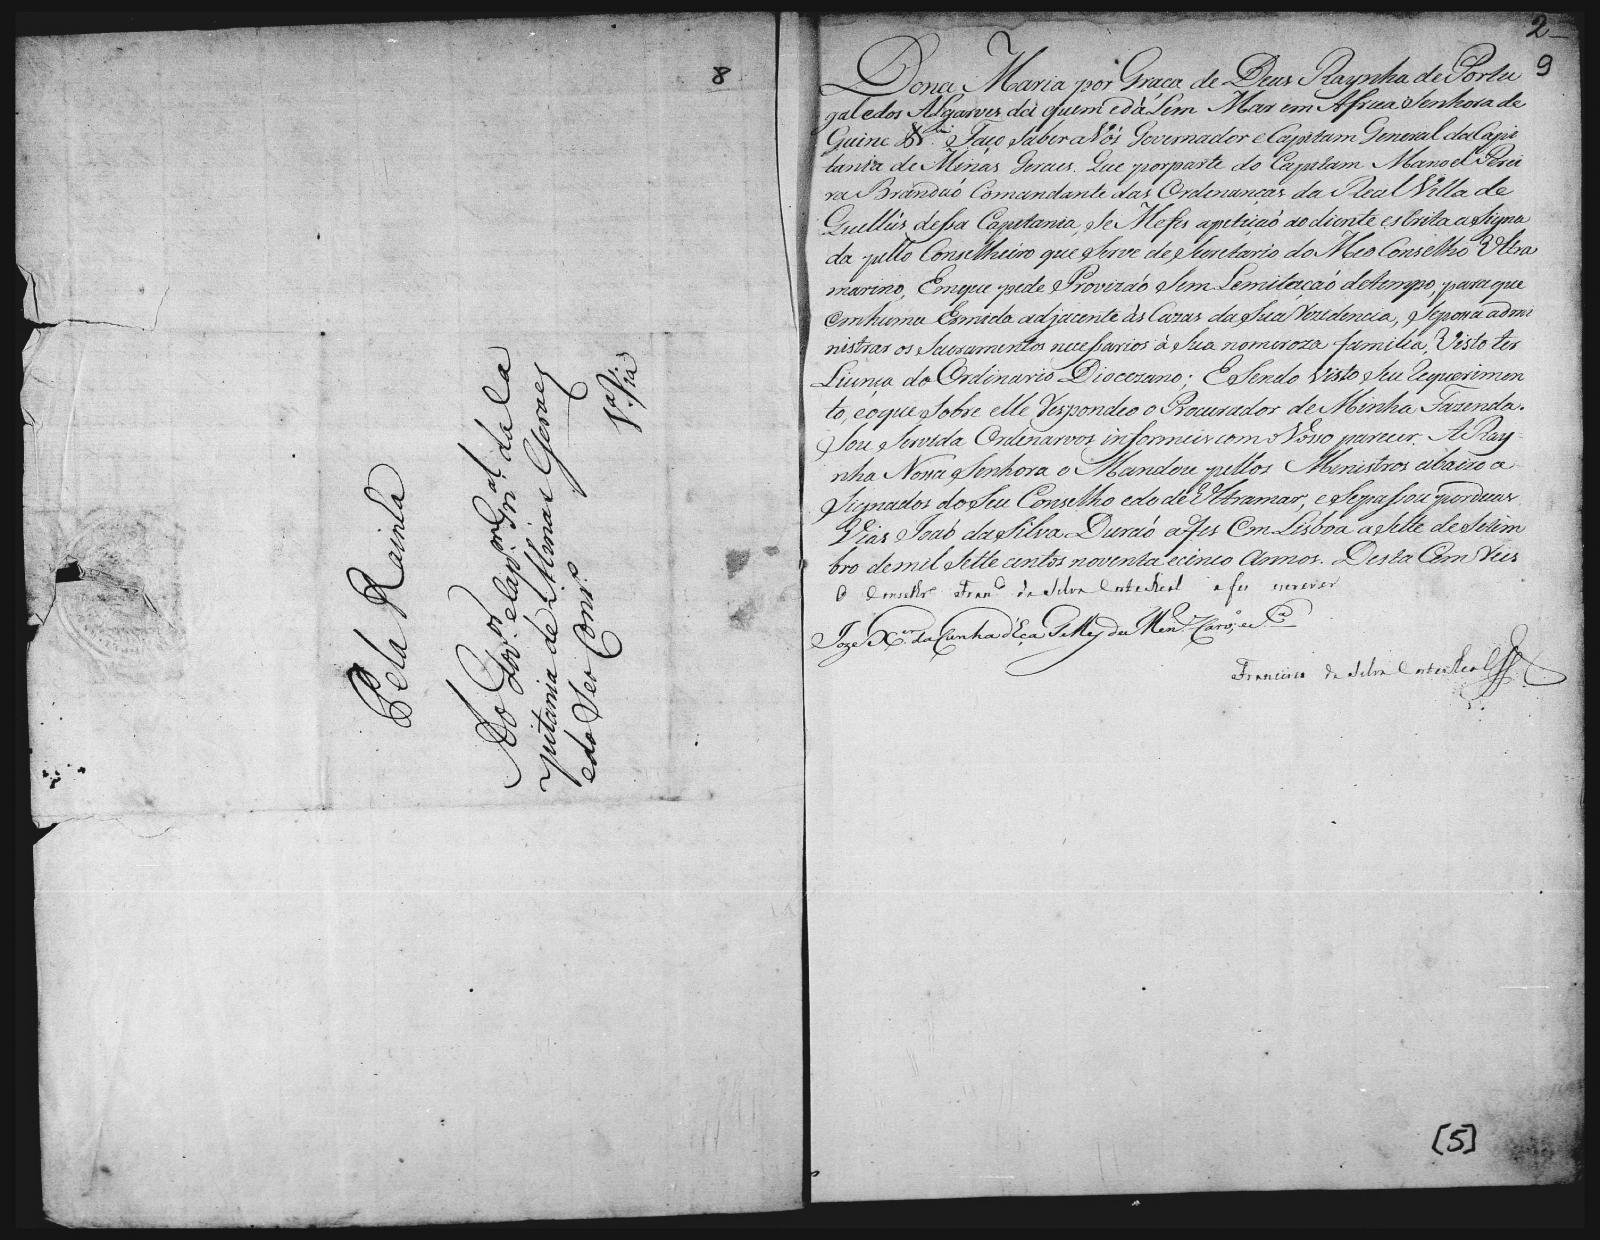 8
Pela Rainha
Ao Gov.or e Cap.m Gn.al da Ca
pitania de Minas Geraes
e do Seo Cons.o
1.a Via
2
9
Dona Maria por Graça de Deus Raynha de Portu
gal e dos Algarves, dá quem e dá lem Mar em Africa Senhora de
Guine &.a Faço saber a Vós Governador e Capitam General da Capi
tania de Minas Geraes. Que por parte do Capitam Manoel Perei
ra Brandaó Comandante das Ordenanças da Real Villa de
Quellús dessa Capitania, se Me fes a petiçaó ao diente escrita a Signa
da pello Conselheiro que serve de Secretario do Meo Conselho Ultra
marino, Em que pede Provizaó Sem Lemitaçaó de tempo, para que
em huma Ermida adjacente ás Cazas da Sua Rezidencia, Se possa admi
nistrar os Sacramentos necessarios á Sua nomeroza familia, Visto ter
Licença do Ordinario Diocezano; E Sendo Visto Seu Requerimen
to, e o que Sobre elle Respondeo o Procurador de Minha Fazenda.
Sou Servida Ordenarvos informeis com o Vosso parecer. A Ray=
nha Nossa Senhora o Mandou pellos Ministros abaixo a
Signados do Seu Conselho e do de Ultramar, e Se passou por duas
Vias Joaó da Silva Duraó a fes Em Lisboa a Sette de Setem
bro de mil Sette centos noventa e cinco Annos. Desta Cem Reis
O Conselhr.o Fran.co da Silva Corte Real a fes escrever
Joze X.er da Cunha d'Eça Telles de Men.s Carv.o, e S.a
Francisco da Silva Corte Real
[5]